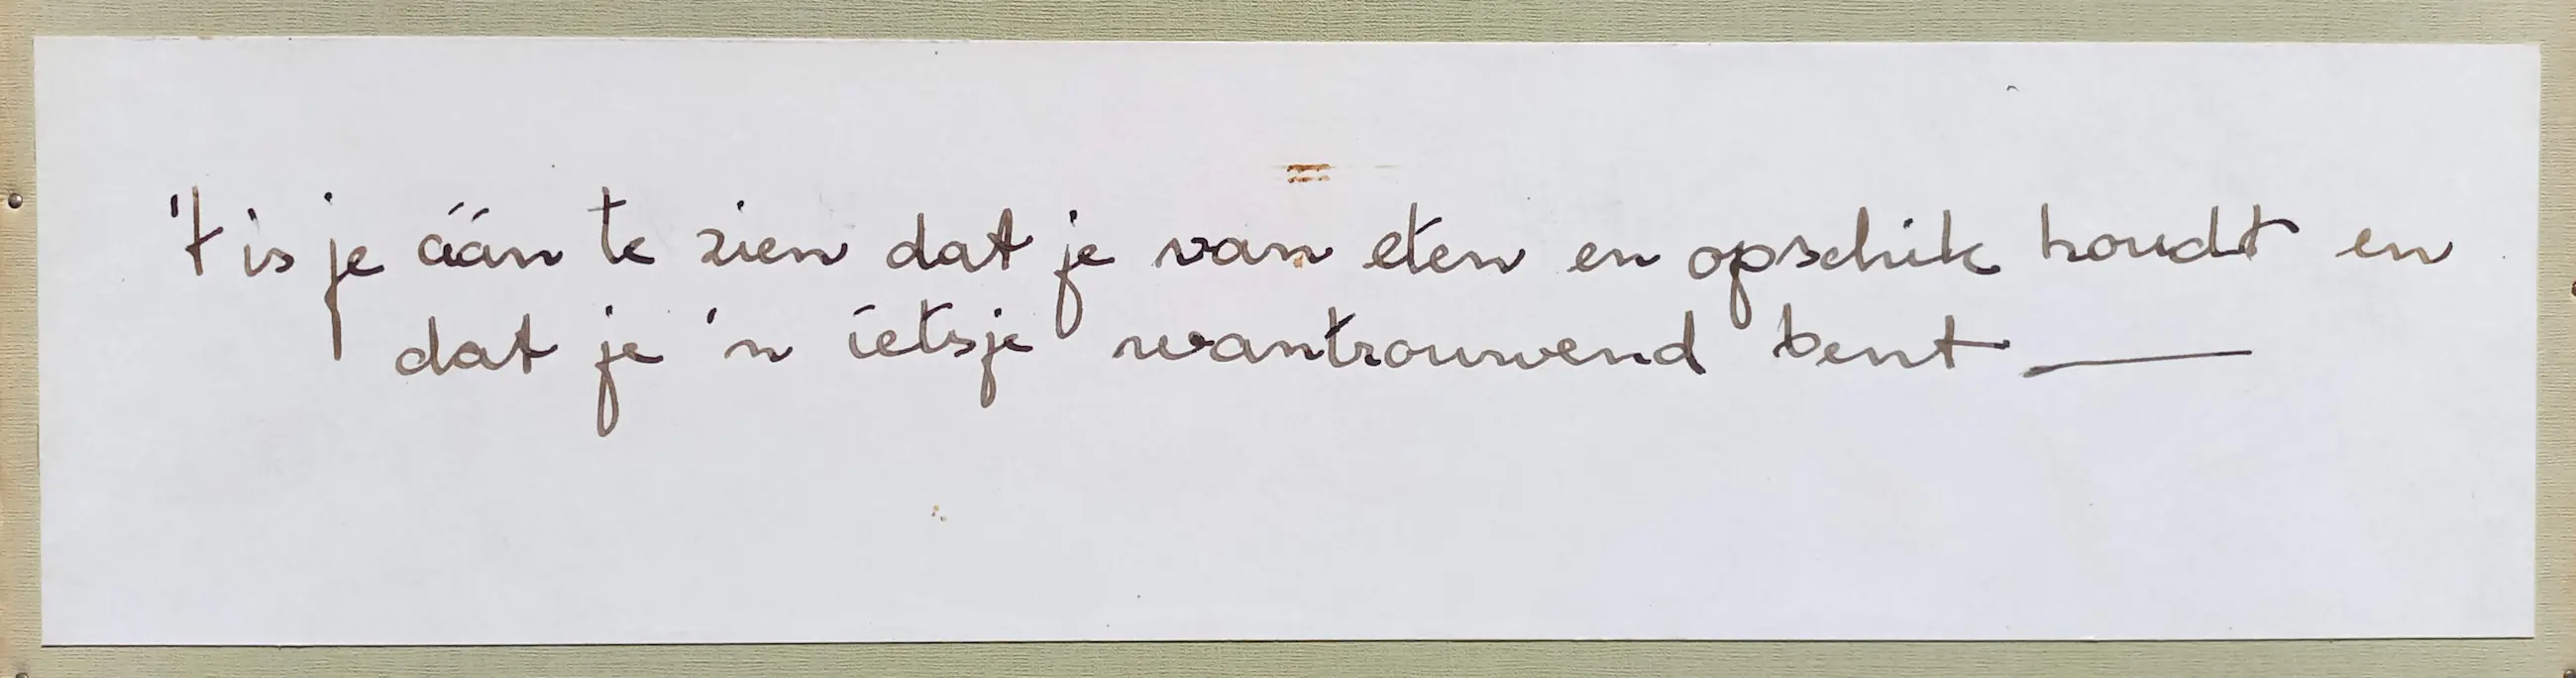 't is je áán te zien dat je van eten en opschik houdt en
dat je 'n ietsje wantrouwend bent —